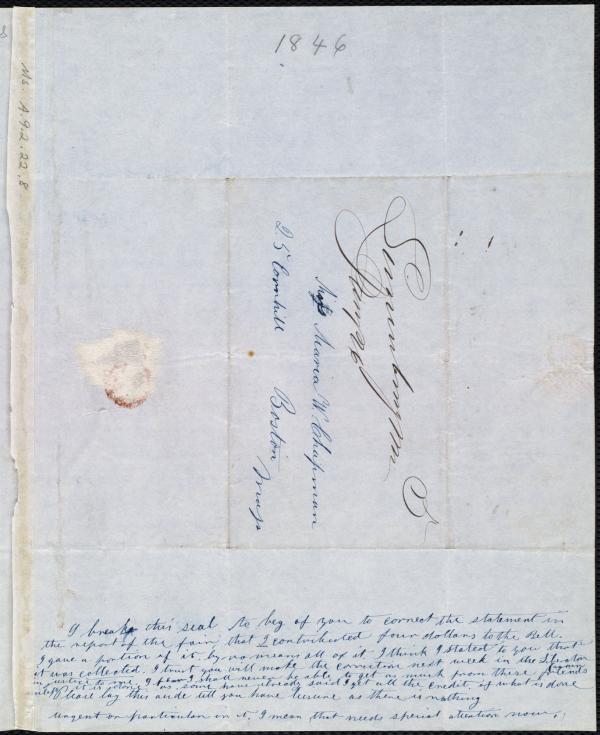 1846
Ms. A.9.2.22.8
Jany 26
Mrs Maria W Chapman
25 Cornhill Boston
Mass
I break this seal to beg of you to correct the statement in
the report of the fair that I contributed four dollars to the Bell.
I gave a portion of it, by no means all of it I think I stated to you that
it was collected. I trust you will make the correction next week in the Liberator
to me, I fear I shall never be able to get as much from these friends
it is done as some have already said I get all the credit of what is done
Please lay this aside till you have leisure as there is nothing
urgent or particular in it, I mean that needs special attention now.